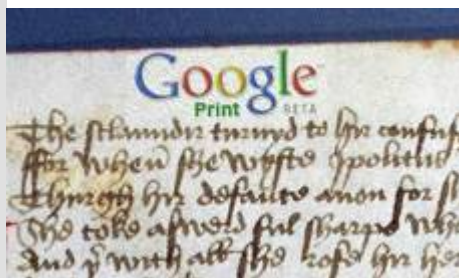 Google
Print BETA
The sclaundir turnyd to hir confus
ffor when she wyste ypolitus
Thurgh hir defaute anon for s
She toke a swerd ful sharpe whe
And þ with all she rofe hir her